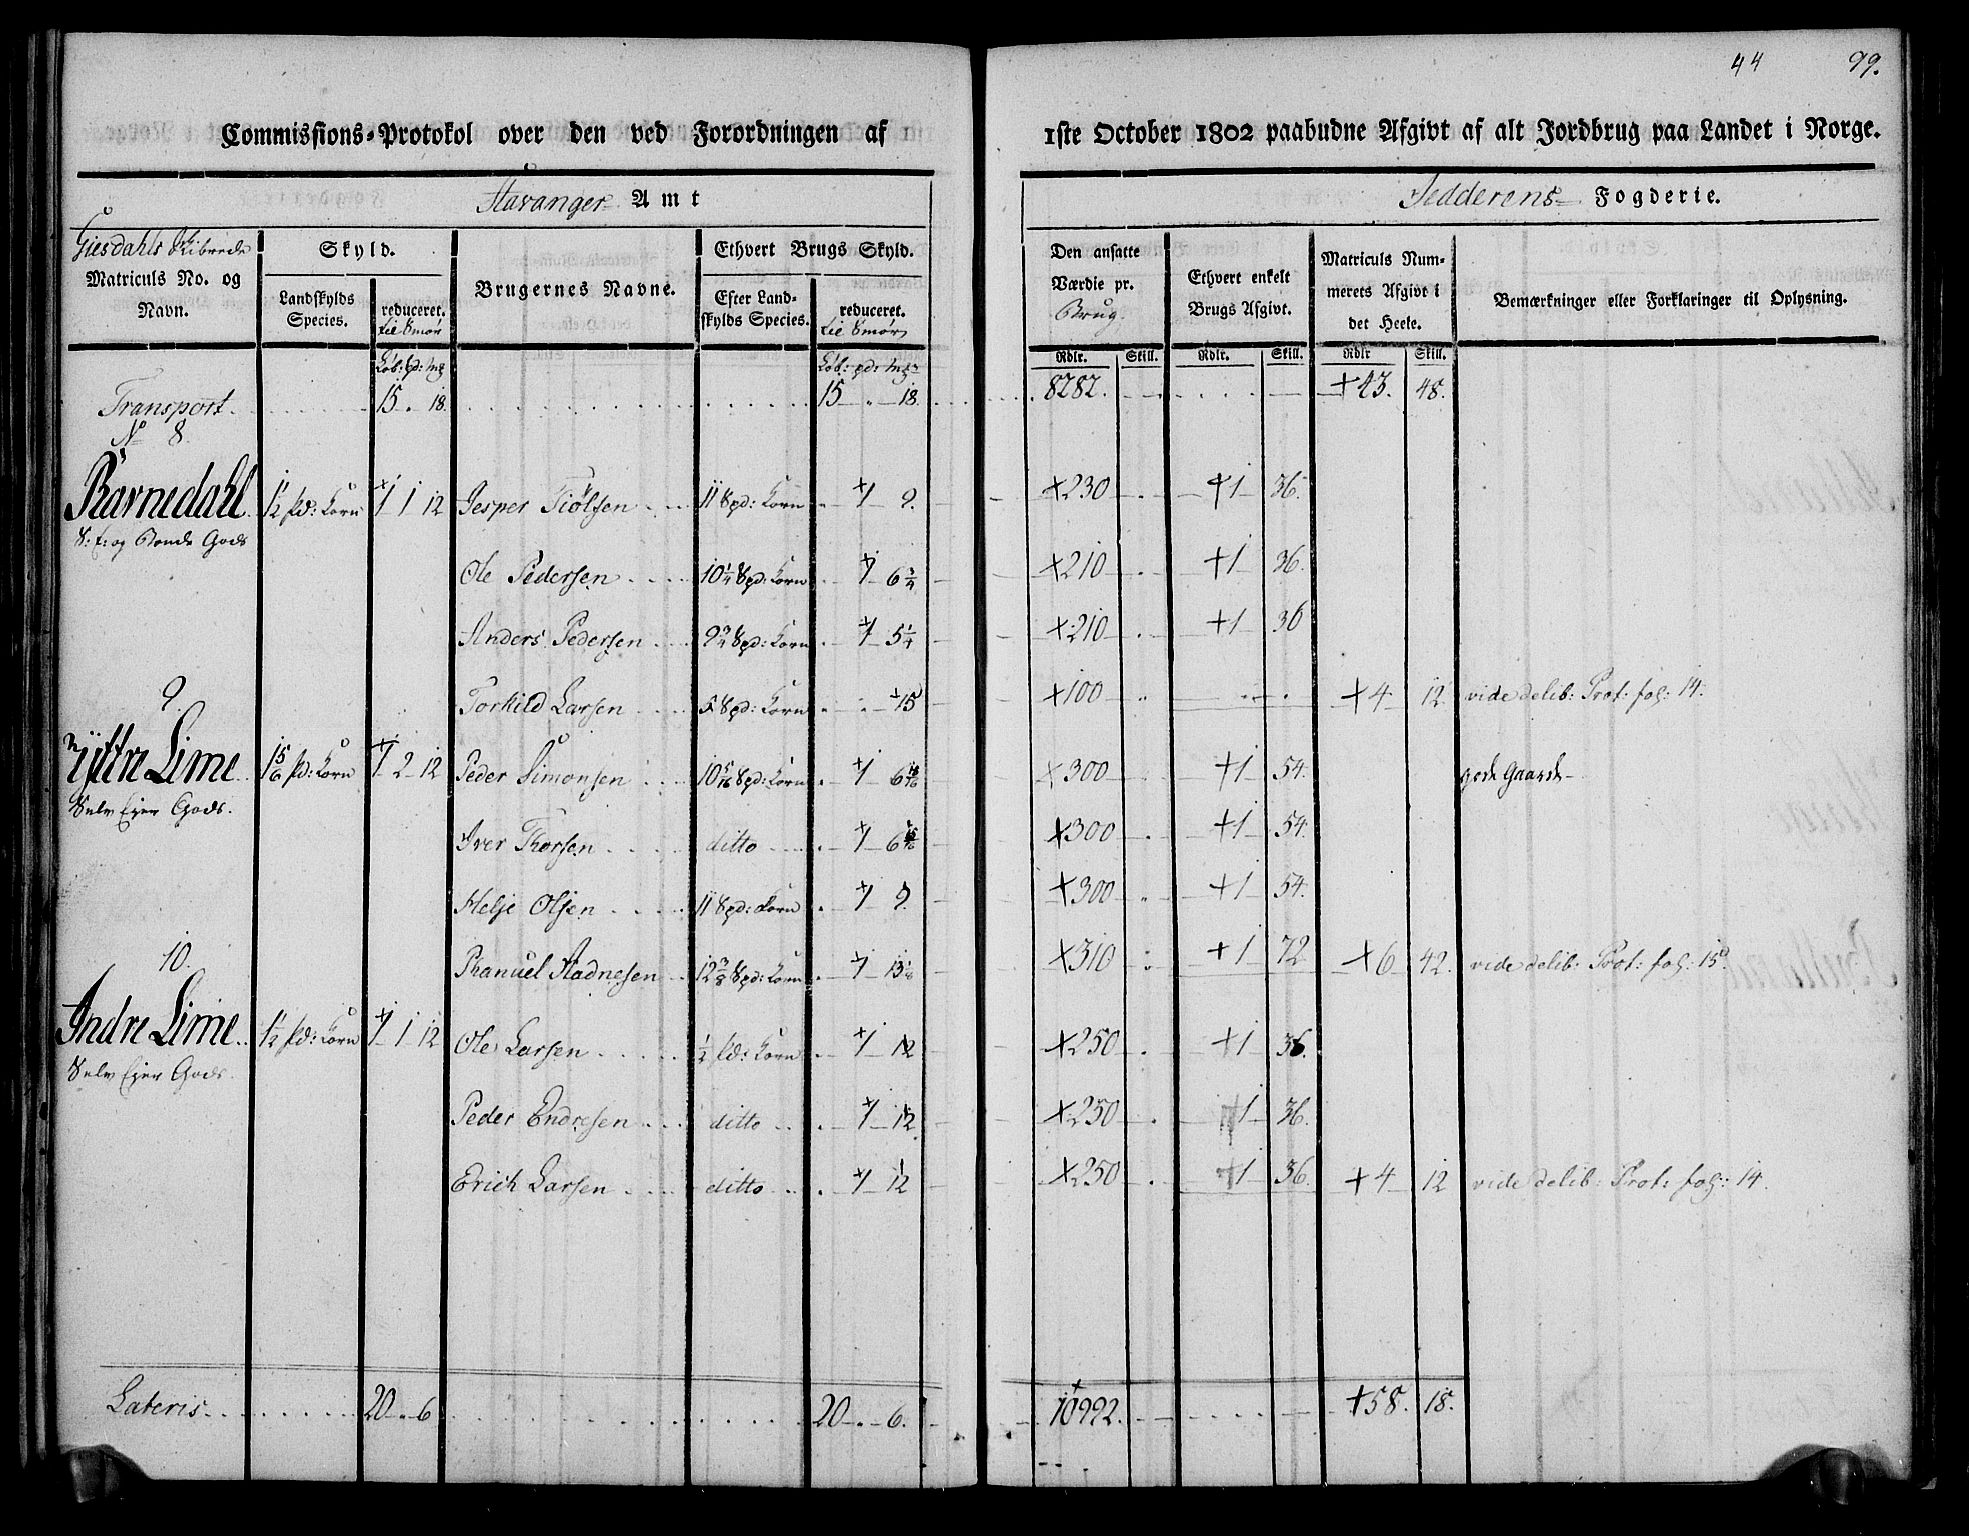 44 99.
Commissions-Protokol over den ved Forordningen af 1ste October 1802 paabudne Afgivt af alt Jordbrug paa Landet i Norge.
Stavanger Amt Jedderens Fogderie.
Giesdahls Skibrede
Matriculs No. og Navn.
Skyld.
Landskylds Species.
reduceret. til Smør
Brugernes Navne.
Ethvert Brugs Skyld.
Efter Landskylds Species.
reduceret. til Smør
Den ansatte Værdie pr. Brug
Ethvert enkelt Brugs Afgivt.
Matriculs Nummerets Afgivt i det Heele.
Bemærkninger eller Forklaringer til Oplysning.
Rdlr. Skill. Rdlr. Skill. Rdlr Skill.
Transport. 15 . 18. 15 - „ - 18. 8282. +43. 48.
No 8.
Ravnedahl 1½ pd: Korn 1 1 12 Jesper Tiølsen 11 Spd: Korn 1 9. +230 +1 36.
S: E: og Bonde Gods
Ole Pedersen 10¼ Spd: Korn 1 6¾ +210 +1 36.
Anders Pedersen 9¾ Spd: Korn 1 5¼ +210 +1 36
Torkild Larsen 5 Spd: Korn +15 +100 +4 12 vide delib: Prot: fol: 14.
9.
Ÿttre Lime 1 5/6 pd: Korn 1 2 12 Peder Simonsen 10 5/16 Spd: Korn 1 6 15/16 +300 +1 54. gode Gaarde
Selv Ejer Gods.
Iver Thorsen ditto 1 6 15/16 +300 +1 54.
Helje Olsen 11 Spd: Korn 1 9 +300 +1 54.
Ranuel Aadnesen 12 3/8 Spd: Korn 1 13 1/8 +310 +1 72 +6 42. vide delib: Prot: fol: 15.
10.
Indre Lime 1½ pd: Korn 1 1 12 Ole Larsen ½ pd: Korn 1 12 +250 +1 36.
Selv Ejer Gods.
Peder Endresen ditto 1 12 +250 +1 36.
Erich Larsen ditto 1 12 +250 +1 36 +4 12 vide delib: Prot: fol: 14.
Lateris 20 . 6 20 - „ - 6. 10992. +58. 18.